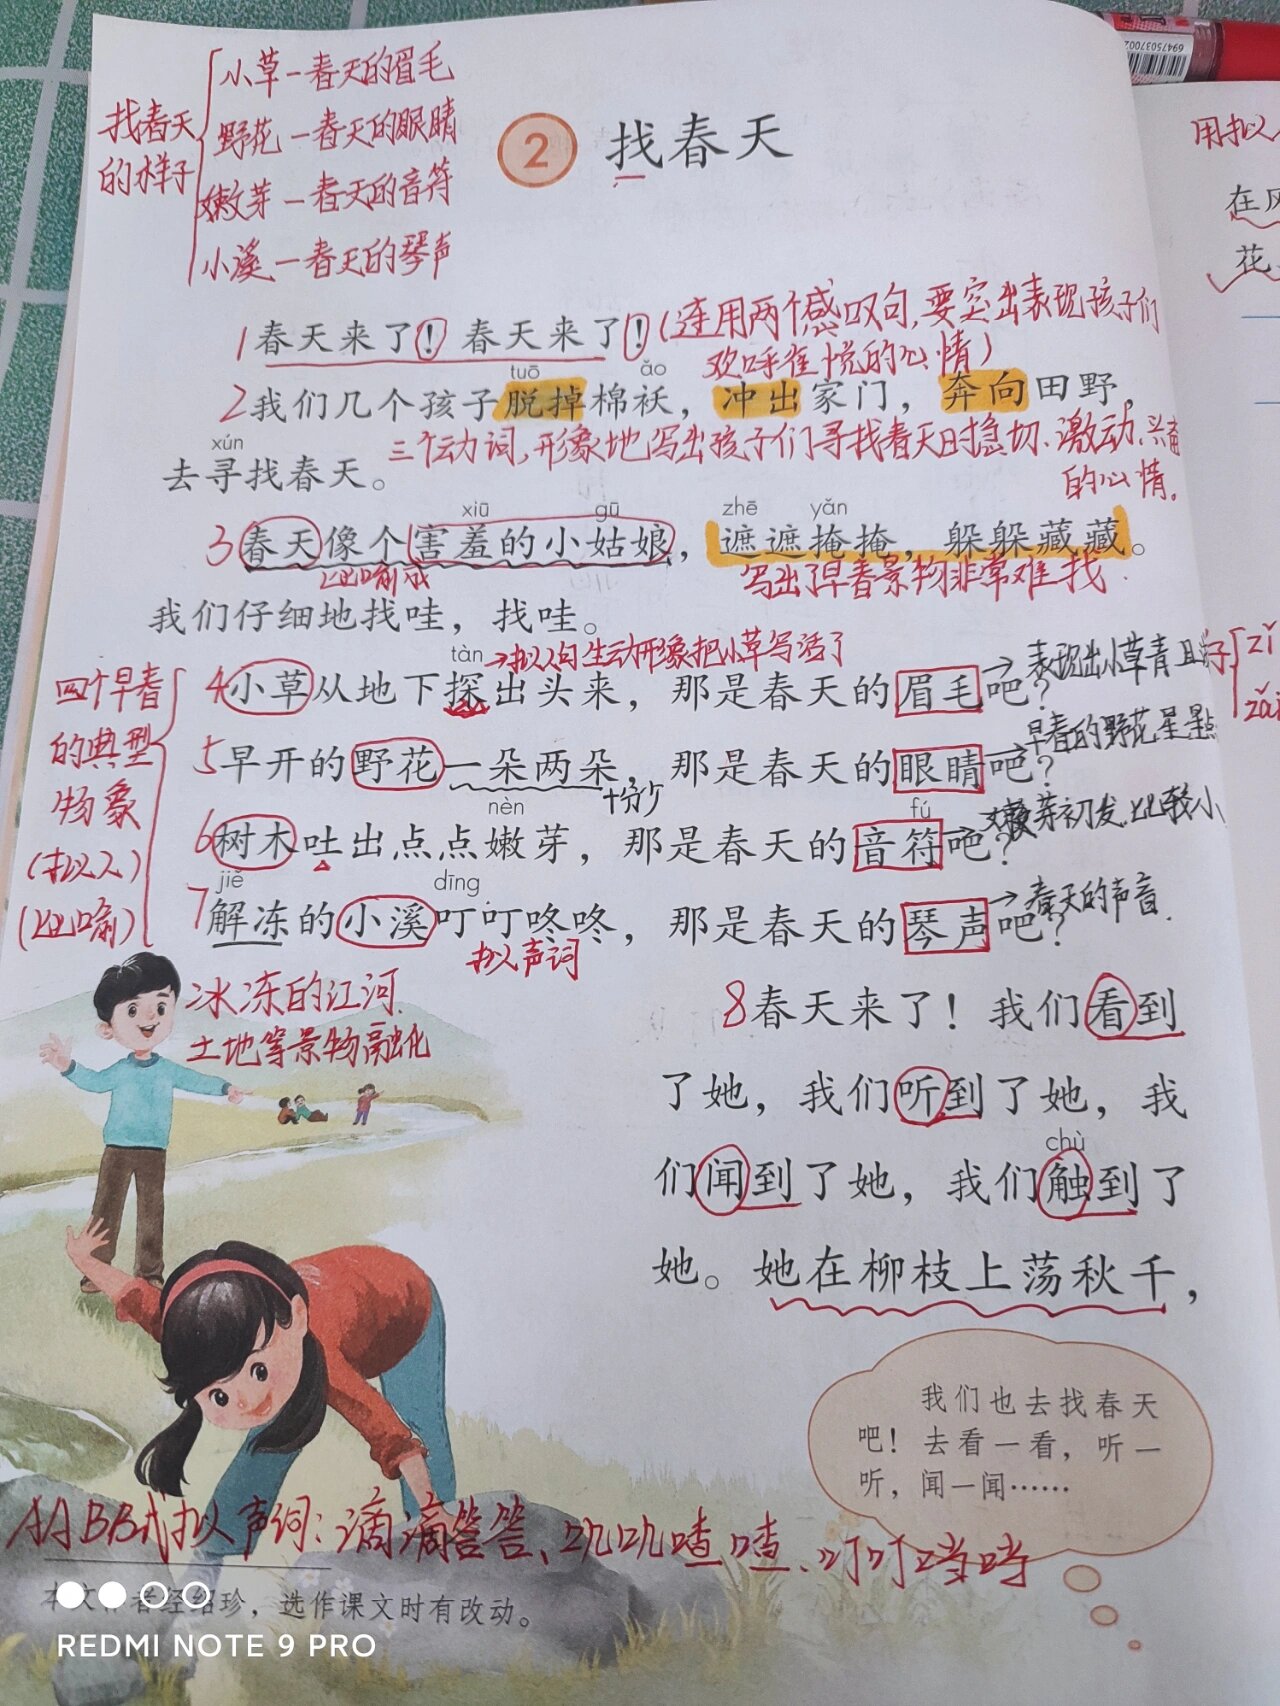 694750370​02
找春天
的样子
小草一春天的眉毛
野花一春天的眼睛
嫩芽一春天的音符
小溪一春天的琴声
2 找春天
用拟人
在风
花
1春天来了！春天来了！(连用两个感叹句,要突出表现孩子们
欢呼雀悦的心情)
tuō ǎo
2我们几个孩子脱掉棉袄，冲出家门，奔向田野，
三个动词,形象地写出孩子们寻找春天时急切、激动、兴奋
的心情。
xún
去寻找春天。
xiū gū zhē yǎn
3春天像个害羞的小姑娘，遮遮掩掩，躲躲藏藏。
比喻成
写出了早春景物非常难找.
我们仔细地找哇，找哇。
四个早春
的典型
物象
(拟人)
(比喻)
tàn→拟人句生动形象把小草写活了
4小草从地下探出头来，那是春天的眉毛吧？
→表现出小草青且
zǐ
5早开的野花一朵两朵，那是春天的眼睛吧？
→早春的野花星星点
十分少
nèn fú
6树木吐出点点嫩芽，那是春天的音符吧？
→嫩芽初发,比较小
jiě dīng
7解冻的小溪叮叮咚咚，那是春天的琴声吧？
→春天的声音.
拟声词
冰冻的江河.
土地等景物融化
8春天来了！我们看到
了她，我们听到了她，我
chù
们闻到了她，我们触到了
她。她在柳枝上荡秋千，
我们也去找春天
吧！去看一看，听一
听，闻一闻……
AABB式拟声词:滴滴答答、叽叽喳喳、叮叮当当
本文作者经绍珍，选作课文时有改动。
REDMI NOTE 9 PRO